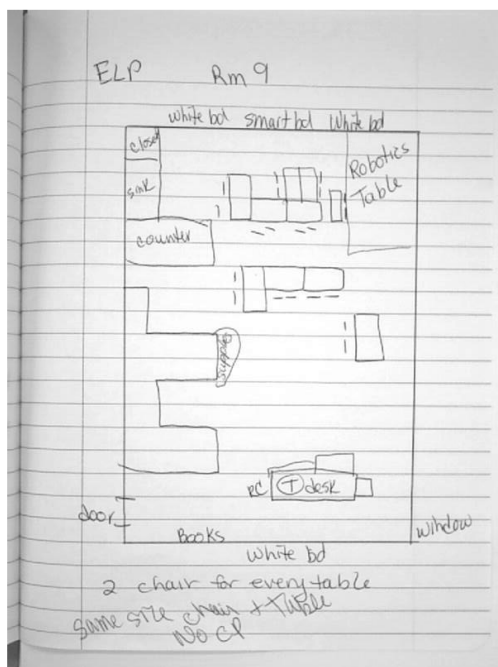 ELP Rm 9
White bd Smart bd White bd
closet
sink
Robotics
Table
counter
supplies
RC T desk
door
Books
window
White bd
2 chair for every table
Same size chair + Table
No CP